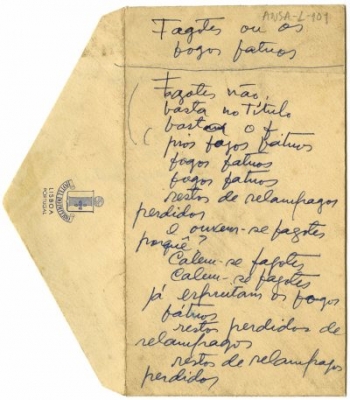 ANSA-L-109
Fagotes ou os
fogos fatuos
Fagotes não,
basta no Título
basta o f
prós fogos fátuos
fogos fatuos
fogos fatuos
restos de relampagos
perdidos
e ouvem-se fagotes
porquê?
Calem-se fagotes
Calem-se fagotes
já espreitam os fogos
fátuos
restos perdidos de
relampagos
restos de relampagos
perdidos
LISBOA
PORTUGAL